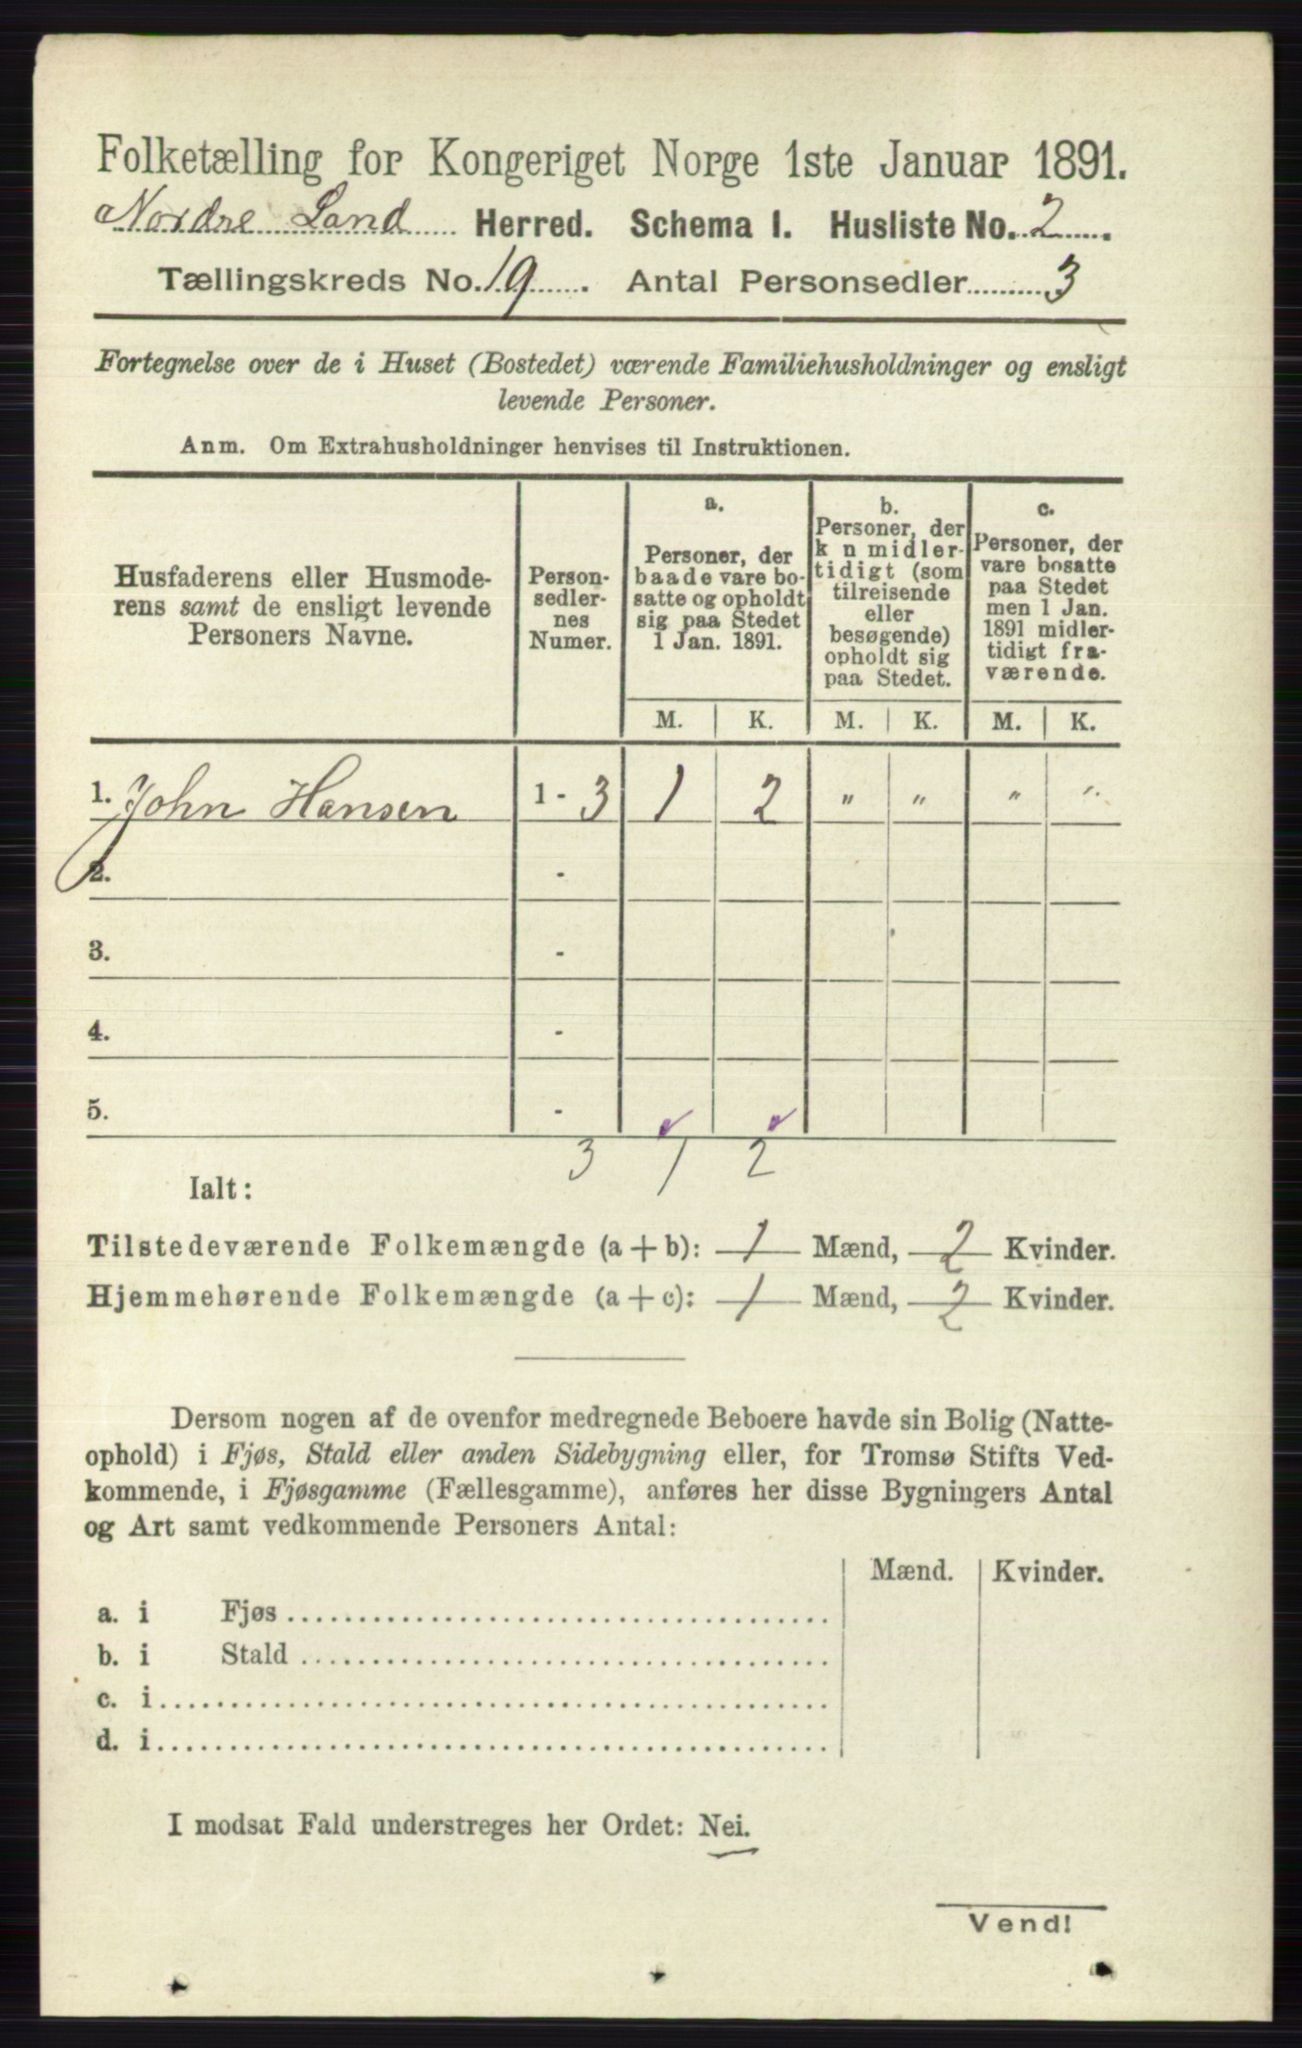 Folketælling for Kongeriget Norge 1ste Januar 1891.
Nordre Land Herred. Schema I. Husliste No. 2
Tællingskreds No. 19. Antal Personsedler 3
Fortegnelse over de i Huset (Bostedet) værende Familiehusholdninger og ensligt
levende Personer.
Anm. Om Extrahusholdninger henvises til Instruktionen.
Husfaderens eller Husmode-
rens samt de ensligt levende
Personers Navne.
Person-
sedler-
nes
Numer.
a.
Personer, der
baade vare bo-
satte og opholdt
sig paa Stedet
1 Jan. 1891.
b.
Personer, der
k n midler-
tidigt (som
tilreisende
eller
besøgende)
opholdt sig
paa Stedet.
c.
Personer, der
vare bosatte
paa Stedet
men 1 Jan.
1891 midler-
tidigt fra-
værende.
M. K. M. K. M. K.
1. John Hansen 1 - 3 1 2 " " " "
2. -
3. -
4. -
5. -
3 1 2
Ialt:
Tilstedeværende Folkemængde (a + b): 1 Mænd, 2 Kvinder.
Hjemmehørende Folkemængde (a + c): 1 Mænd, 2 Kvinder.
Dersom nogen af de ovenfor medregnede Beboere havde sin Bolig (Natte-
ophold) i Fjøs, Stald eller anden Sidebygning eller, for Tromsø Stifts Ved-
kommende, i Fjøsgamme (Fællesgamme), anføres her disse Bygningers Antal
og Art samt vedkommende Personers Antal:
Mænd. Kvinder.
a. i Fjøs
b. i Stald
c. i
d. i
I modsat Fald understreges her Ordet: Nei.
Vend!